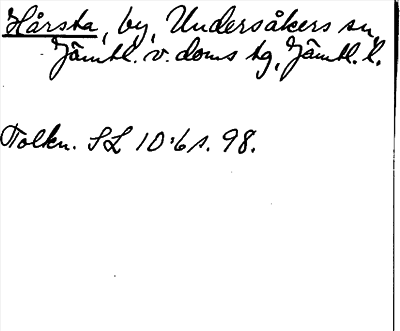 Hårsta, by, Undersåkers sn,
Jämtl. v. doms tg, Jämtl. l.
Tolkn. SL 10:6 s. 98.